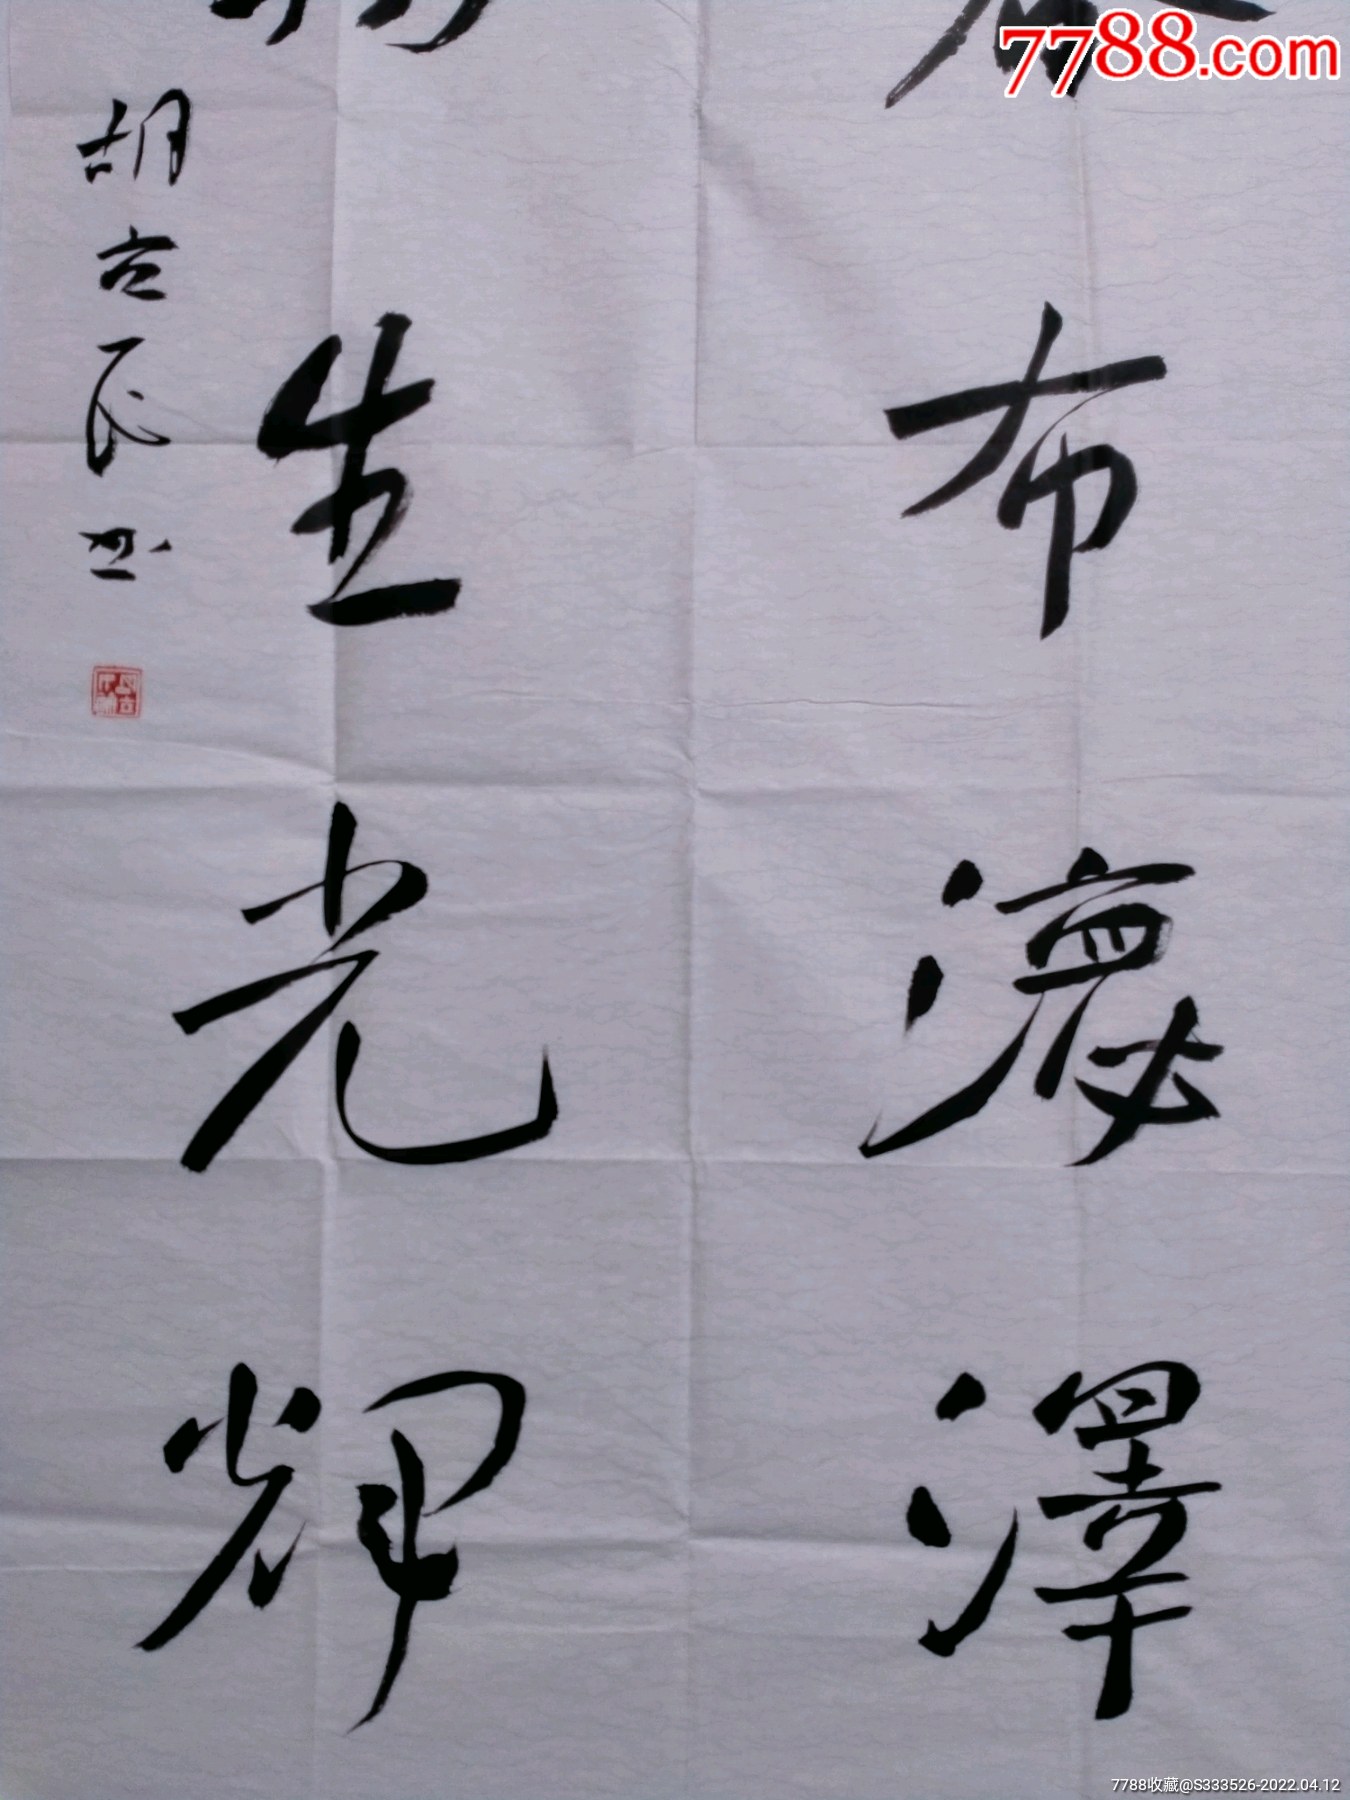 布德澤
生光輝
胡古民书
7788.com
7788收藏@S333526-2022.04.12